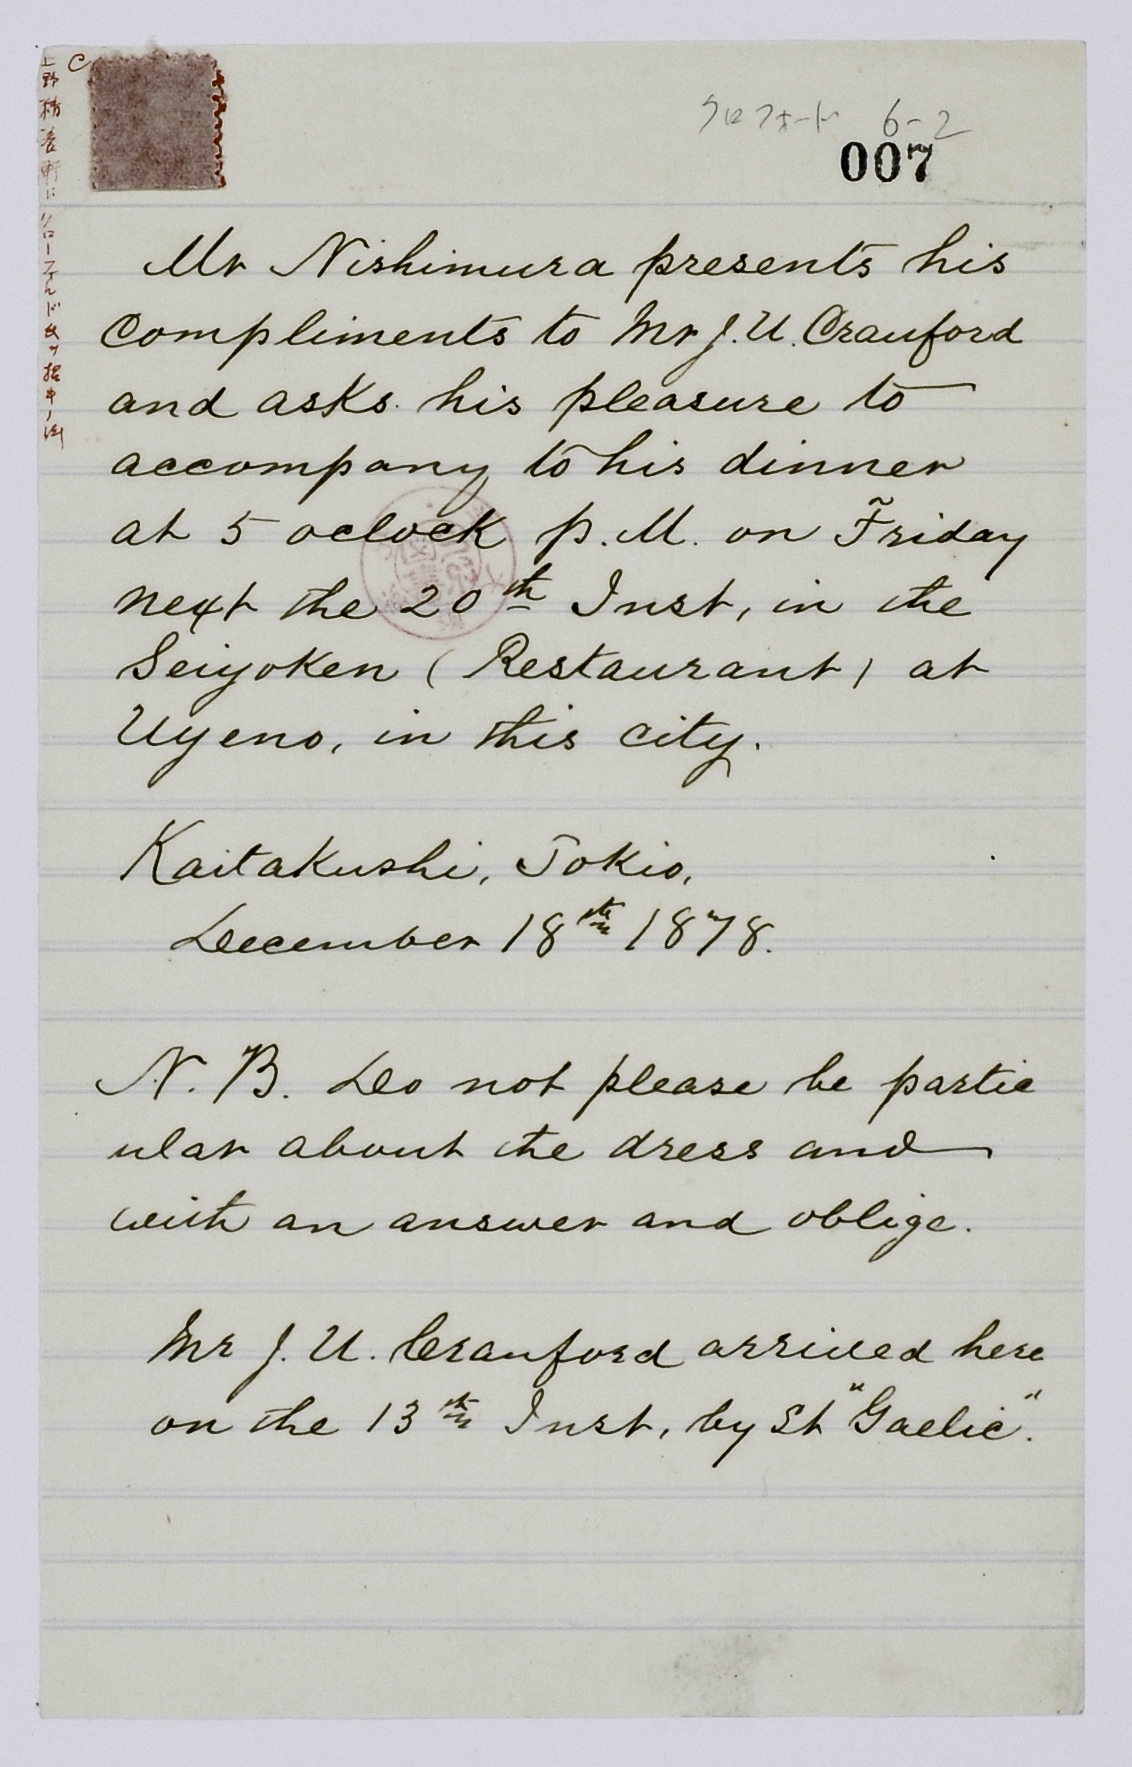 クロフォード 6-2
007
Mr Nishimura presents his
compliments to Mr J. U. Crauford
and asks his pleasure to
accompany to his dinner
at 5 oclock p. M. on Friday
next the 20th Inst, in the
Seiyoken (Restaurant) at
Uyeno, in this city.
Kaitakushi, Tokio,
December 18th 1878.
N. B. Do not please be partic
ular about the dress and
with an answer and oblige.
Mr J. U. Crauford arrived here
on the 13th Inst, by St "Gaelic".